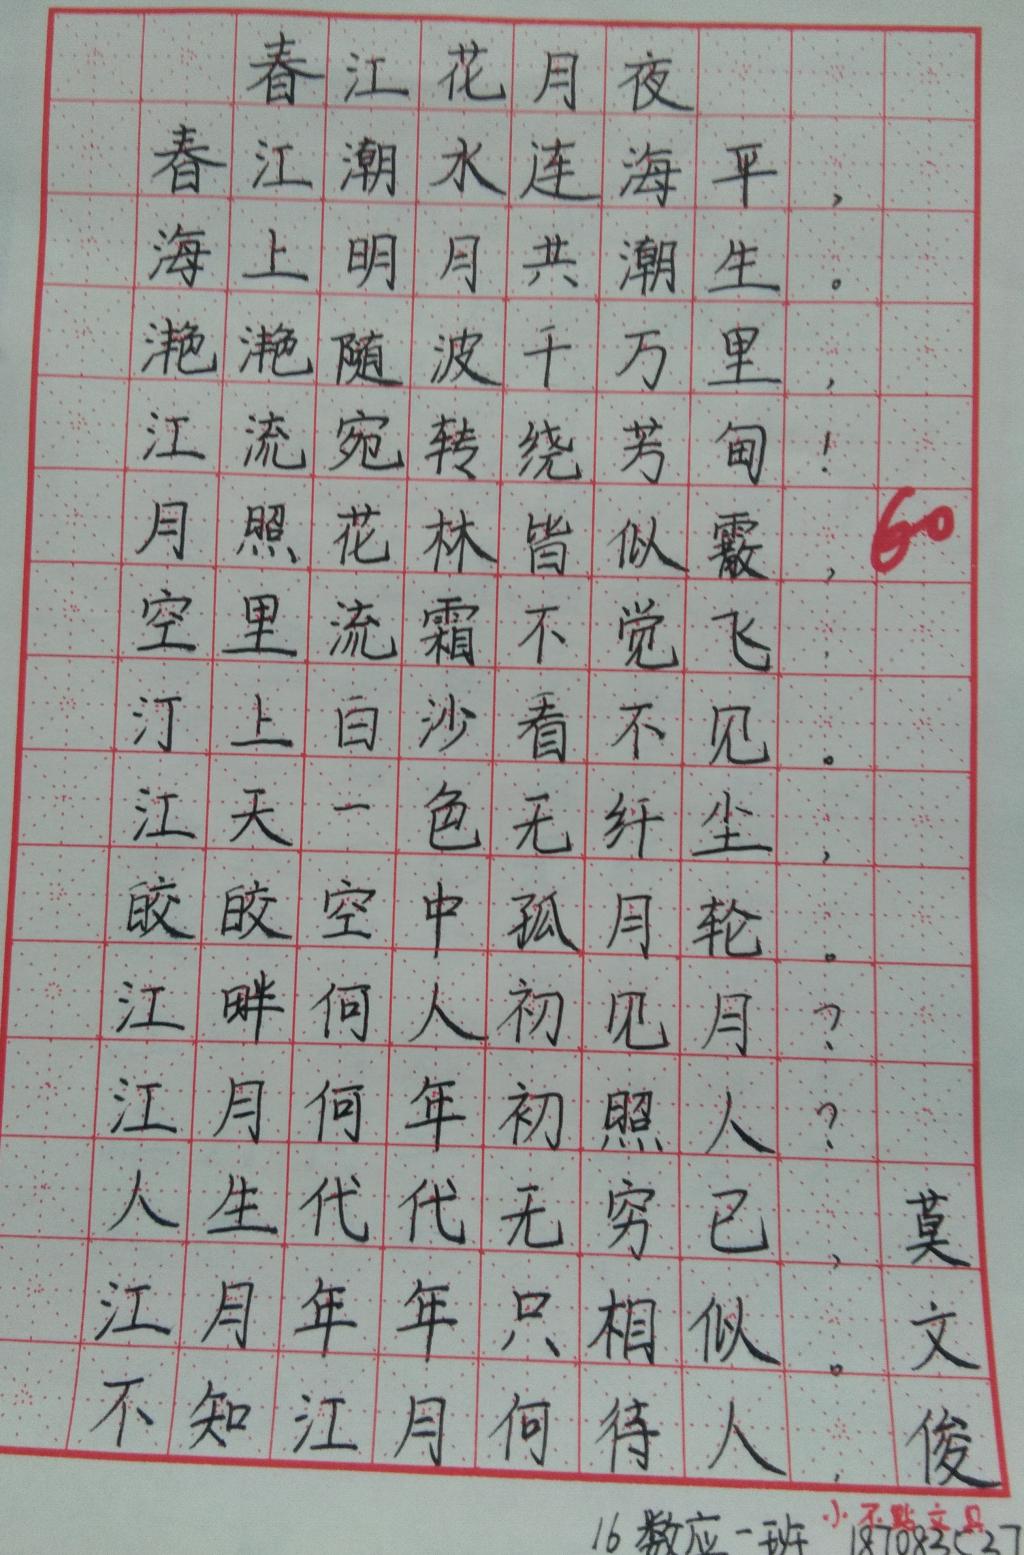 春江花月夜
春江潮水连海平，
海上明月共潮生。
滟滟随波千万里，
江流宛转绕芳甸！
月照花林皆似霰，
60
空里流霜不觉飞，
汀上白沙看不见。
江天一色无纤尘，
皎皎空中孤月轮。
江畔何人初见月？
江月何年初照人？
人生代代无穷已，
江月年年只相似。
不知江月何待人，
莫文俊
小不點文具
16数应一班